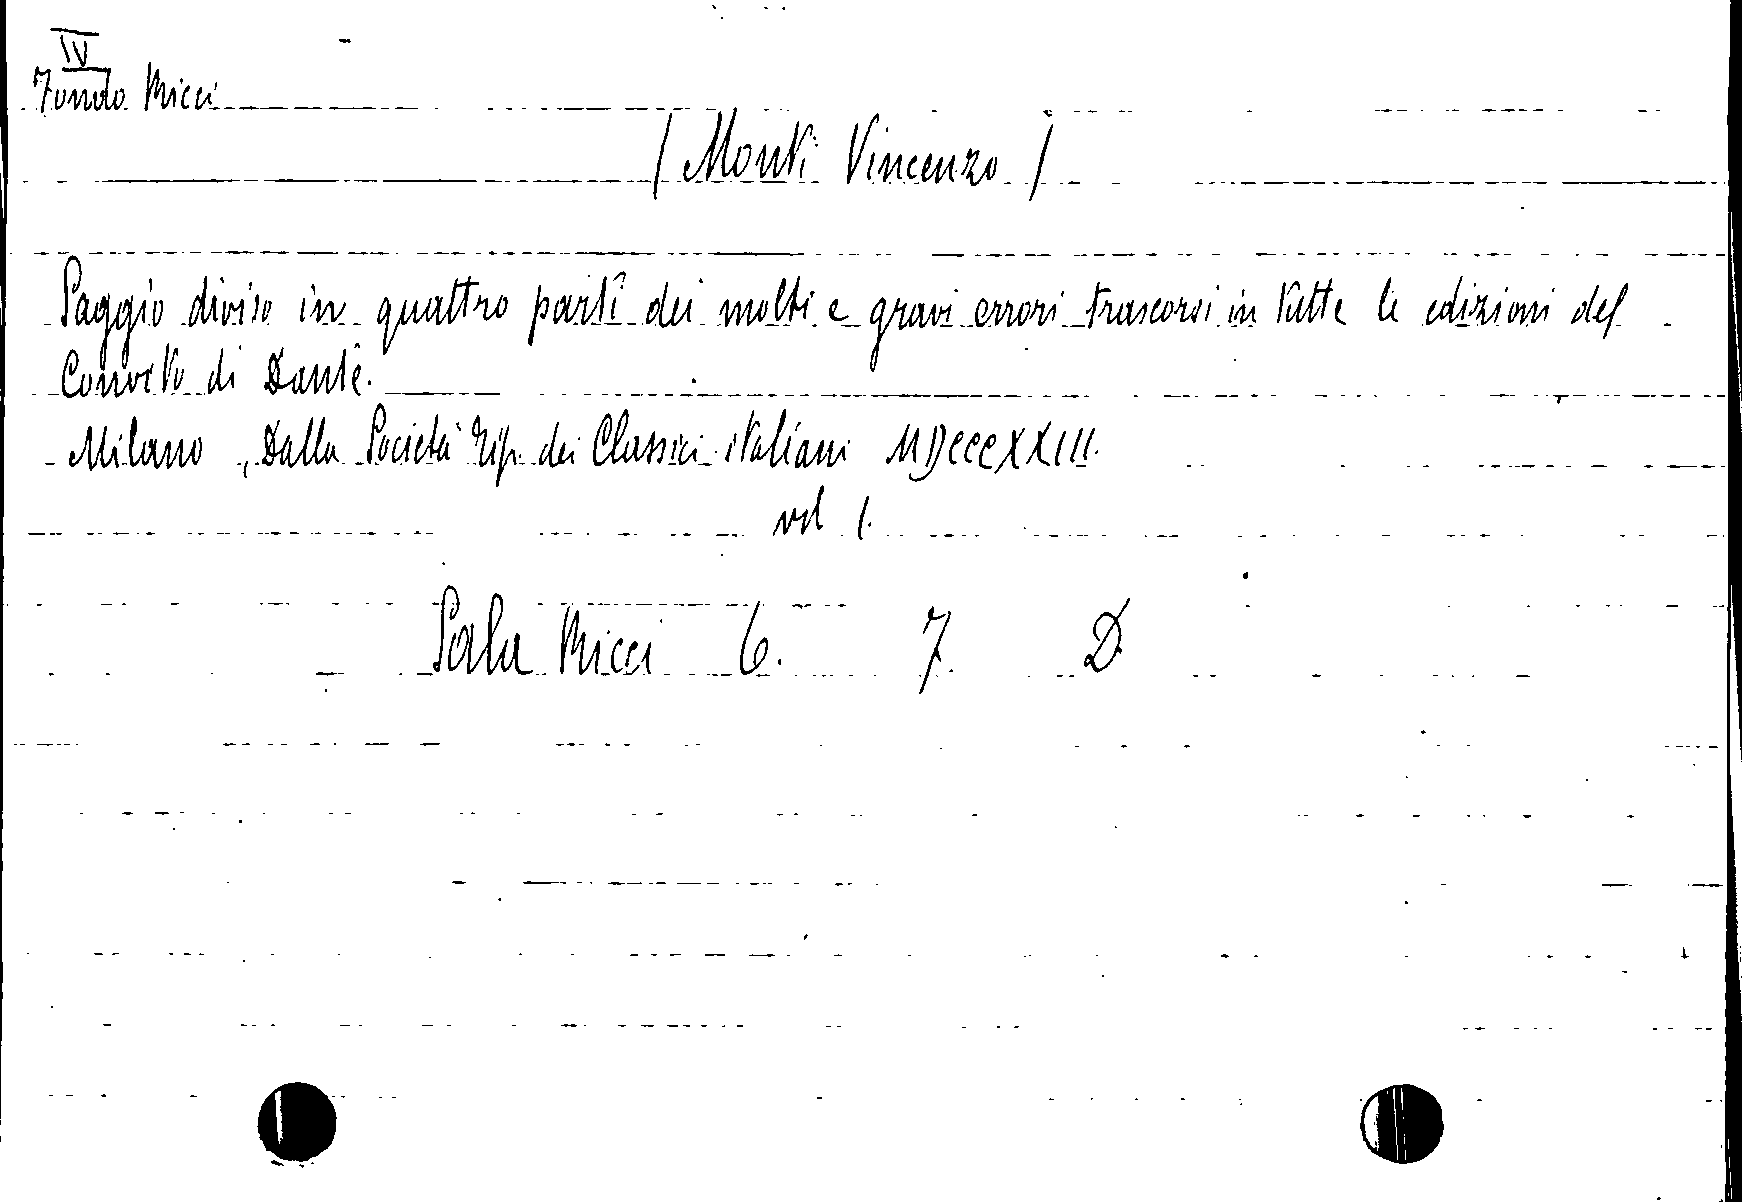 IV
Fondo Ricci
( Monti Vincenzo )
Saggio diviso in quattro parti dei molti e gravi errori trascorsi in tutte le edizioni del
Convito di Dante.
Milano, Dalla Società tip. dei Classici italiani MDCCCXXIII.
vol 1.
Sala Ricci 6. 7 D